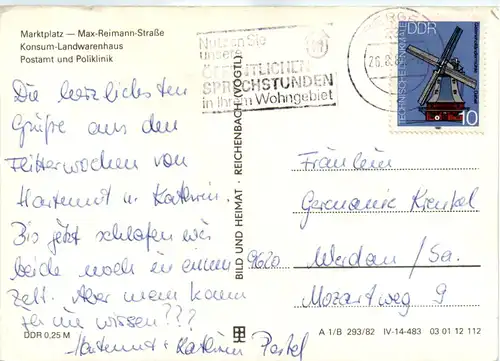 Marktplatz — Max-Reimann-Straße
Konsum-Landwarenhaus
Postamt und Poliklinik
Die herzlichsten
Grüße aus den
Flitterwochen von
Hartmut u. Kathrin.
Bis jetzt schlafen wir
beide noch in einem
Zelt. Aber wem kann
man wissen???
Hartmut + Kathrin Pastel
DDR 0,25 M
BILD UND HEIMAT · REICHENBACH (VOGTL)
Nutzen Sie
unsere
ÖFFENTLICHEN
SPRECHSTUNDEN
in Ihrem Wohngebiet
26.8.8
DDR
TECHNISCHE DENKMALE
10
Fräulein
Germanie Kienkel
9620 Werdau/Sa.
Mozartweg 9
A 1/B 293/82 IV-14-483 03 01 12 112